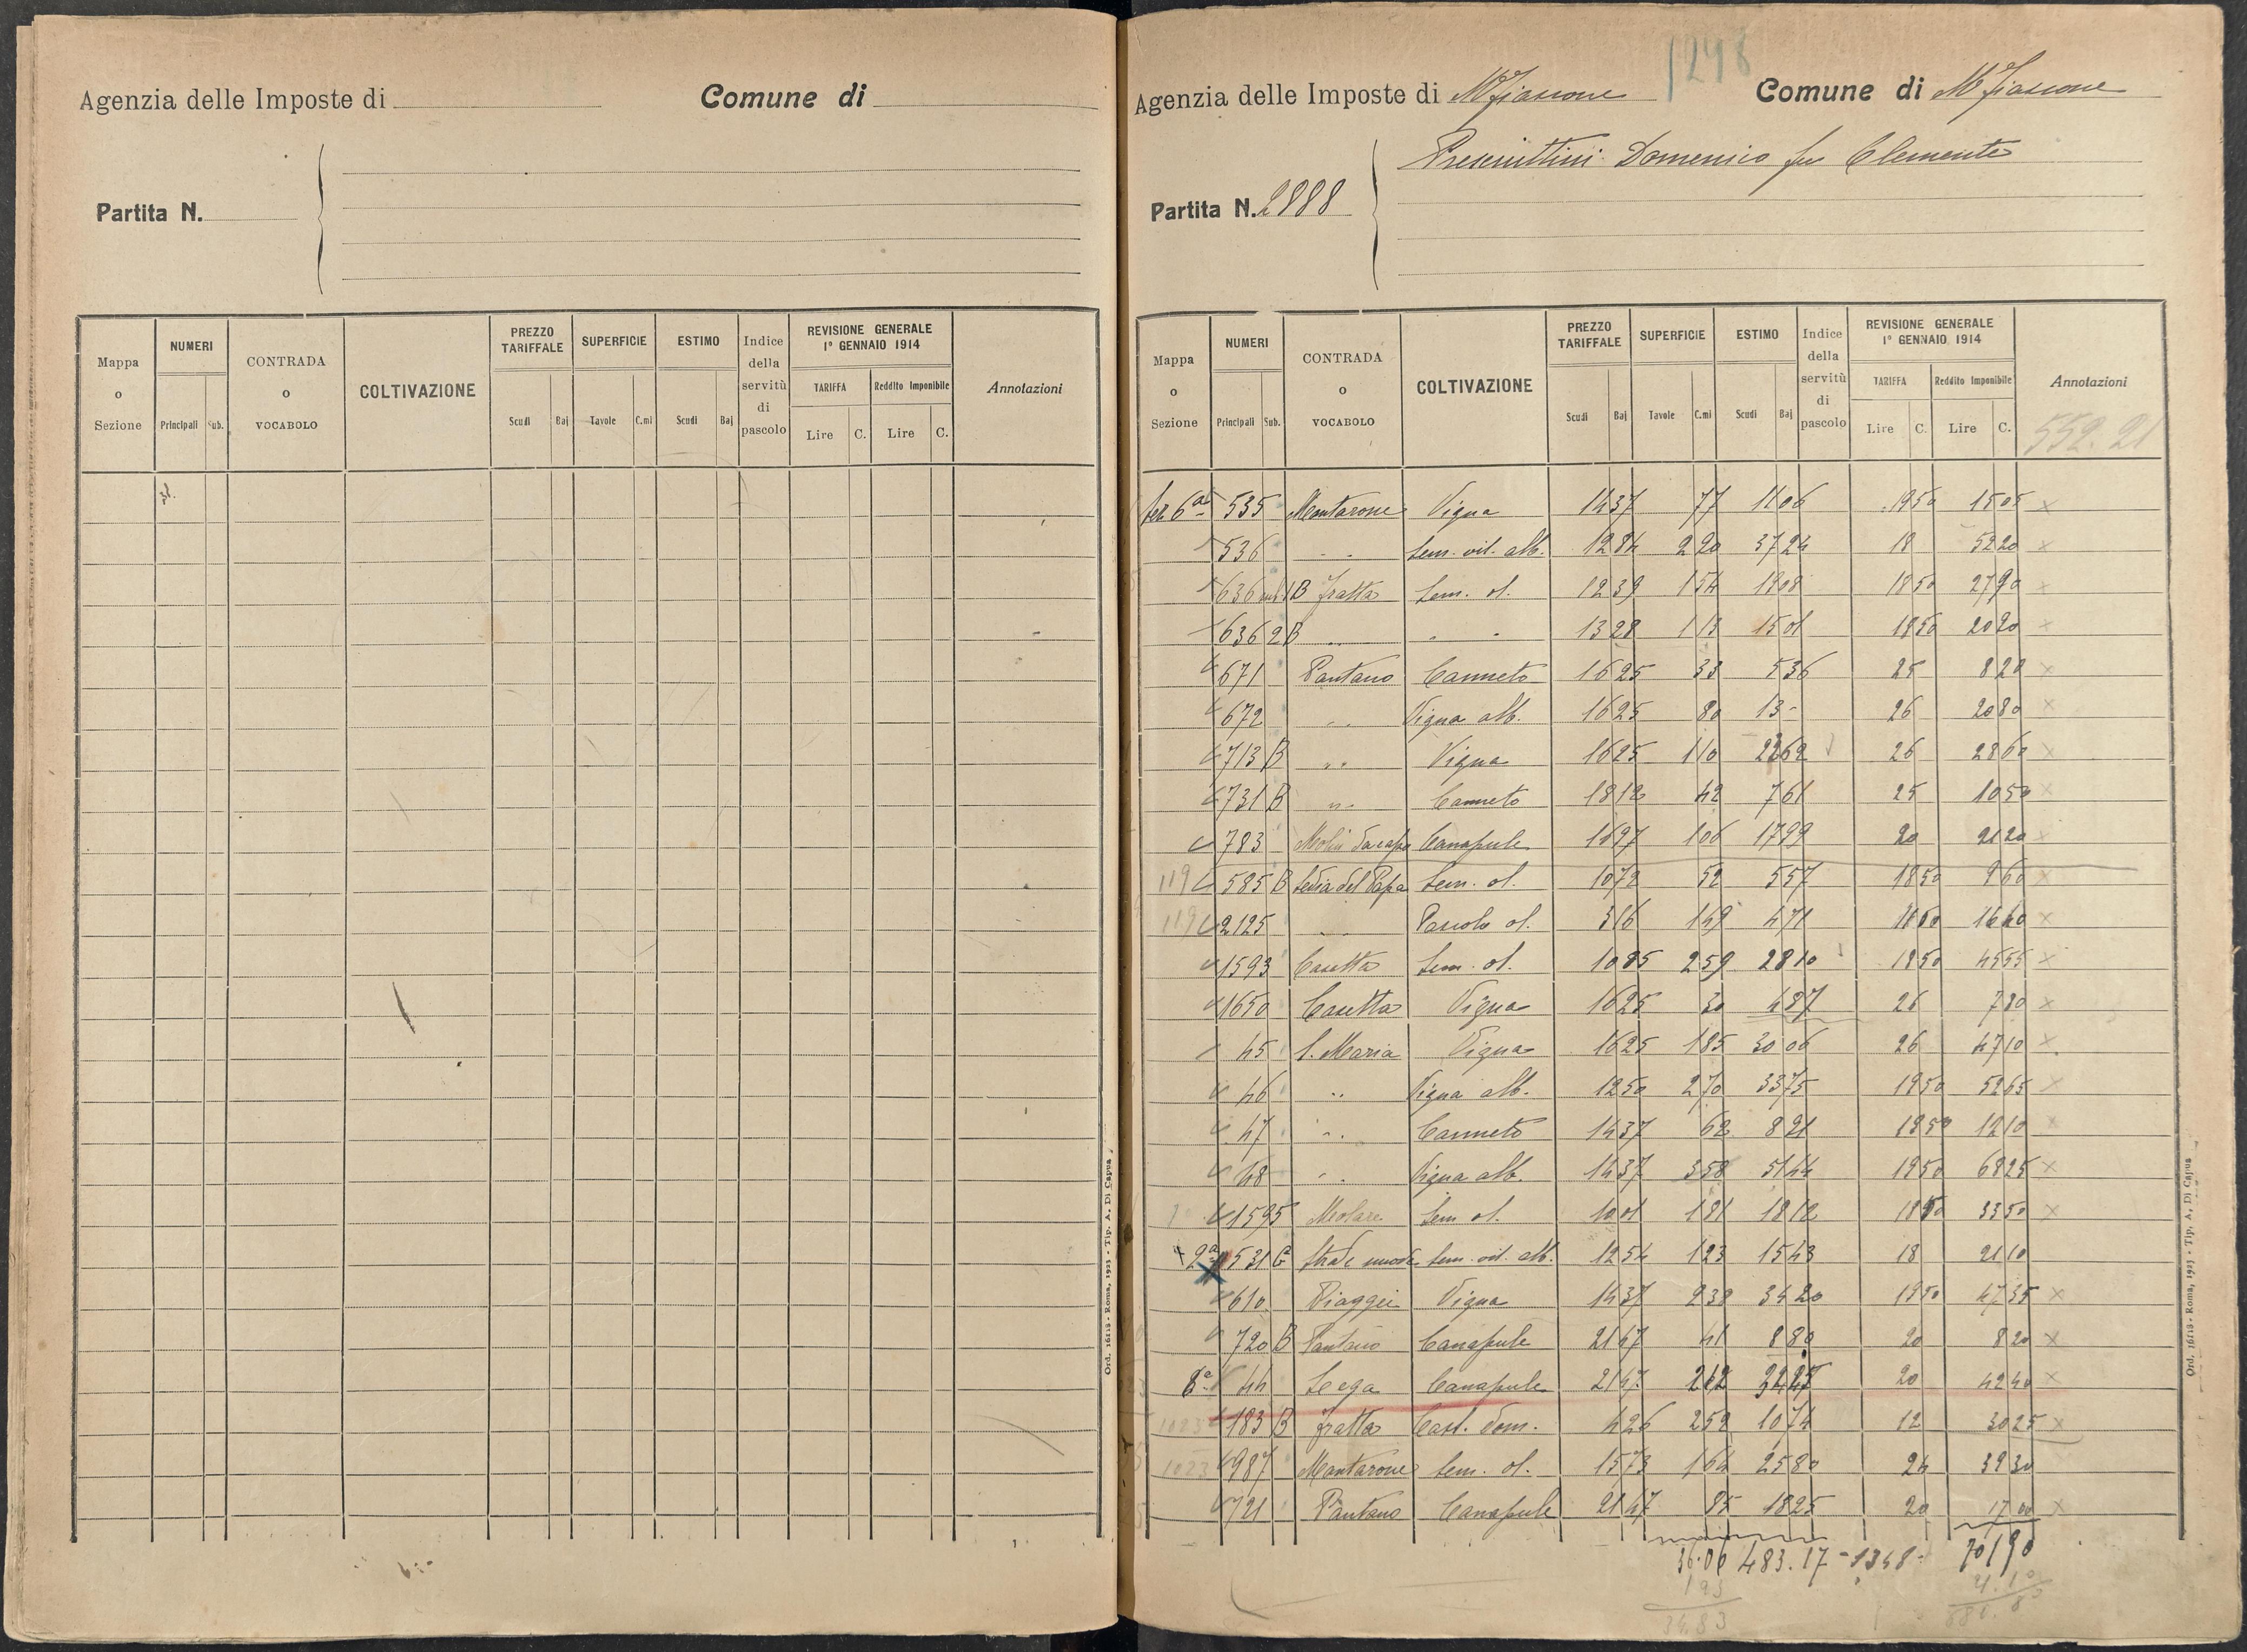 Agenzia delle Imposte di
Comune di
Partita N.
Mappa o Sezione
NUMERI
Principali Sub.
CONTRADA o VOCABOLO
COLTIVAZIONE
PREZZO TARIFFALE
Scudi Baj
SUPERFICIE
Tavole C.mi
ESTIMO
Scudi Baj
Indice della servitù di pascolo
REVISIONE GENERALE 1º GENNAIO 1914
TARIFFA
Lire C.
Reddito Imponibile
Lire C.
Annotazioni
Ord. 16118 - Roma, 1923 - Tip. A. Di Capua
1248
Agenzia delle Imposte di M Fiascone Comune di M Fiascone
Domenico fu Clemente
Partita N. 2888
Mappa o Sezione
NUMERI
Principali Sub.
CONTRADA o VOCABOLO
COLTIVAZIONE
PREZZO TARIFFALE
Scudi Baj
SUPERFICIE
Tavole C.mi
ESTIMO
Scudi Baj
Indice della servitù di pascolo
REVISIONE GENERALE 1º GENNAIO 1914
TARIFFA
Lire C.
Reddito Imponibile
Lire C.
Annotazioni
552.21
Sez 6a 535 Montarone Vigna 14 37 77 11 06 19 50 15 05 x
536 " " Sem. vit. alb. 12 84 2 90 37 24 18 52 20 x
636 sub 1 B Fratta Sem. ol. 12 39 1 54 19 08 18 50 27 90 x
636 2 B " " " 13 28 1 13 15 01 18 50 20 20 x
671 Pantano Canneto 16 25 33 5 36 25 8 20 x
672 " " Vigna alb. 16 25 80 13 - 26 20 80 x
713 B " " Vigna 16 25 1 10 22 62 26 28 60 x
731 B " " Canneto 18 12 42 7 61 25 10 50 x
783 Molin da capo Canapule 16 97 1 06 17 99 20 21 20 x
119 585 B Sedia del Papa Sem. ol. 10 72 52 5 57 18 50 9 60 x
119 2125 " " Pascolo ol. 3 16 1 49 4 71 16 40 x
1593 Casetta Sem. ol. 10 85 2 59 28 10 19 50 45 55 x
1650 Casetta Vigna 16 25 30 4 87 26 7 80 x
45 S. Maria Vigna 16 25 1 85 30 06 26 47 10 x
46 " " Vigna alb. 12 50 2 70 33 75 19 50 52 65 x
47 " " Canneto 14 37 62 8 91 19 50 12 10 x
48 " " Vigna alb. 14 37 3 58 51 44 19 50 68 25 x
1595 Molare Sem. ol. 10 01 1 81 18 12 18 50 33 50 x
2a 531 C Strada nuova Sem. vit. alb. 12 54 1 23 15 43 18 21 10
610 Piaggie Vigna 14 37 2 38 34 20 19 50 47 35 x
720 B Pantano Canapule 21 67 41 8 80 20 8 20 x
8a 44 Lega Canapule 21 67 2 12 20 42 40 x
1023 183 B Fratta Cast. dom. 4 26 2 52 10 74 12 30 25 x
1023 987 Montarone Sem. ol. 15 73 1 64 25 80 24 39 30
721 Pantano Canapule 21 47 85 18 25 20 17 00 x
36.06 483.17 - 1348 - 701 90
1 23 21.10
34.83 680.80
Ord. 16118 - Roma, 1923 - Tip. A. Di Capua